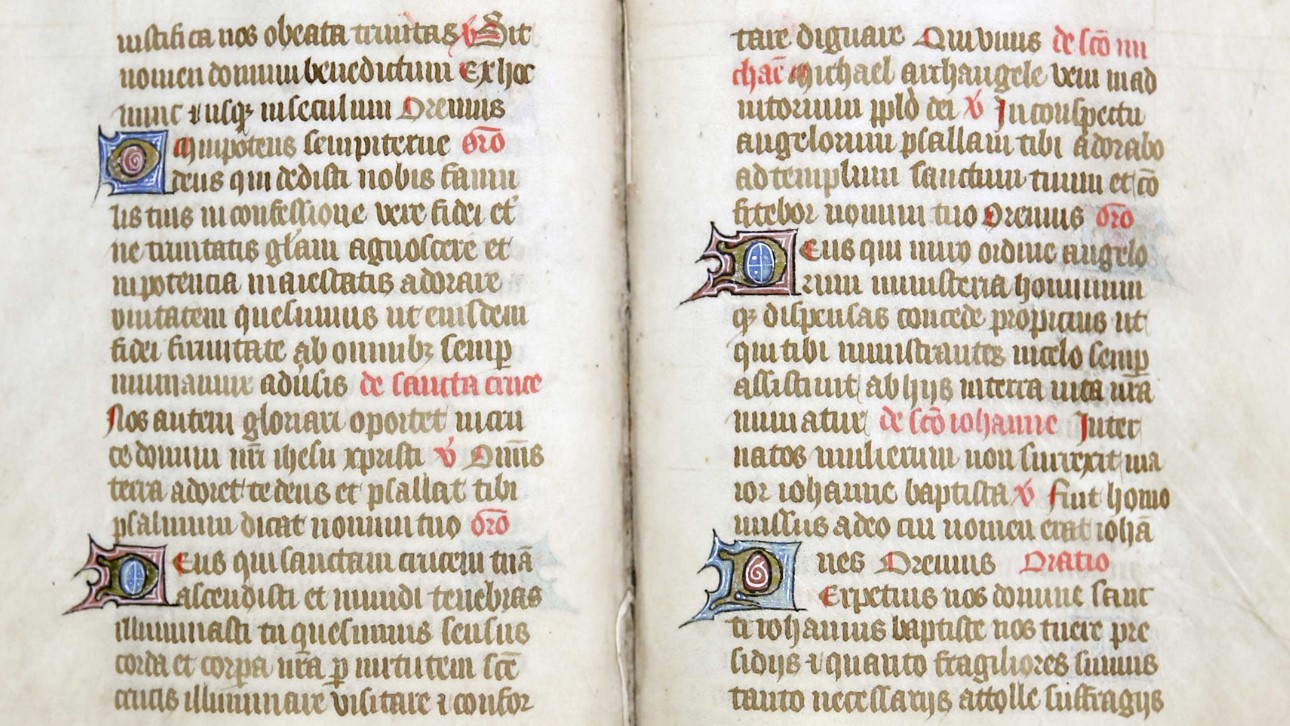 iustifica nos o beata trinitas ℣ Sit
nomen domini benedictum Ex hoc
nunc ⁊ usqꝫ in seculum Oremus
Omnipotens sempiterne oro̅
deus qui dedisti nobis famu
lis tuis in confessione vere fidei et
ne trinitatis gl̅am agnoscere et
in potencia maiestatis adorare
vnitatem quesumus ut eiusdem
fidei firmitate ab omnibꝫ semp̲
muniamur adu̅sis de sancta cruce
Nos autem gloriari oportet in cru
ce domini nr̅i ihesu xpristi ℣ Om̅is
terra adoret te deus et psallat tibi
psalmum dicat nomini tuo oro̅
Deus qui sanctam crucem tua̅
ascendisti et mundi tenebras
illuminasti tu quesumus sensus
corda et corpa nr̅a p̲ uirtutem sce̅
crucis illuminare visitare ⁊ confor
tare dignare Qui viuis de sco̅ mi
chae̅ Michael archangele veni in ad
iutorium pp̅lo dei ℣ In conspectu
angelorum psallam tibi adorabo
ad templum sanctum tuum et co̅
fitebor nomini tuo Oremus oro̅
Deus qui miro ordine angelo
rum ministeria hominum
qꝫ dispensas concede propicius ut
qui tibi ministrantes in celo semp̲
assistunt ab hijs in terra uita nr̅a
muniatur de sco̅ iohanne Inter
natos mulierum non surrexit ma
ior iohanne baptista ℣ Fuit homo
missus a deo cui nomen erat ioha̅
nes Oremus Oratio
Perpetuis nos domine sanc
ti iohannis baptiste nos tuere pre
sidijs ⁊ quanto fragiliores sumus
tanto necessarijs attolle suffragijs